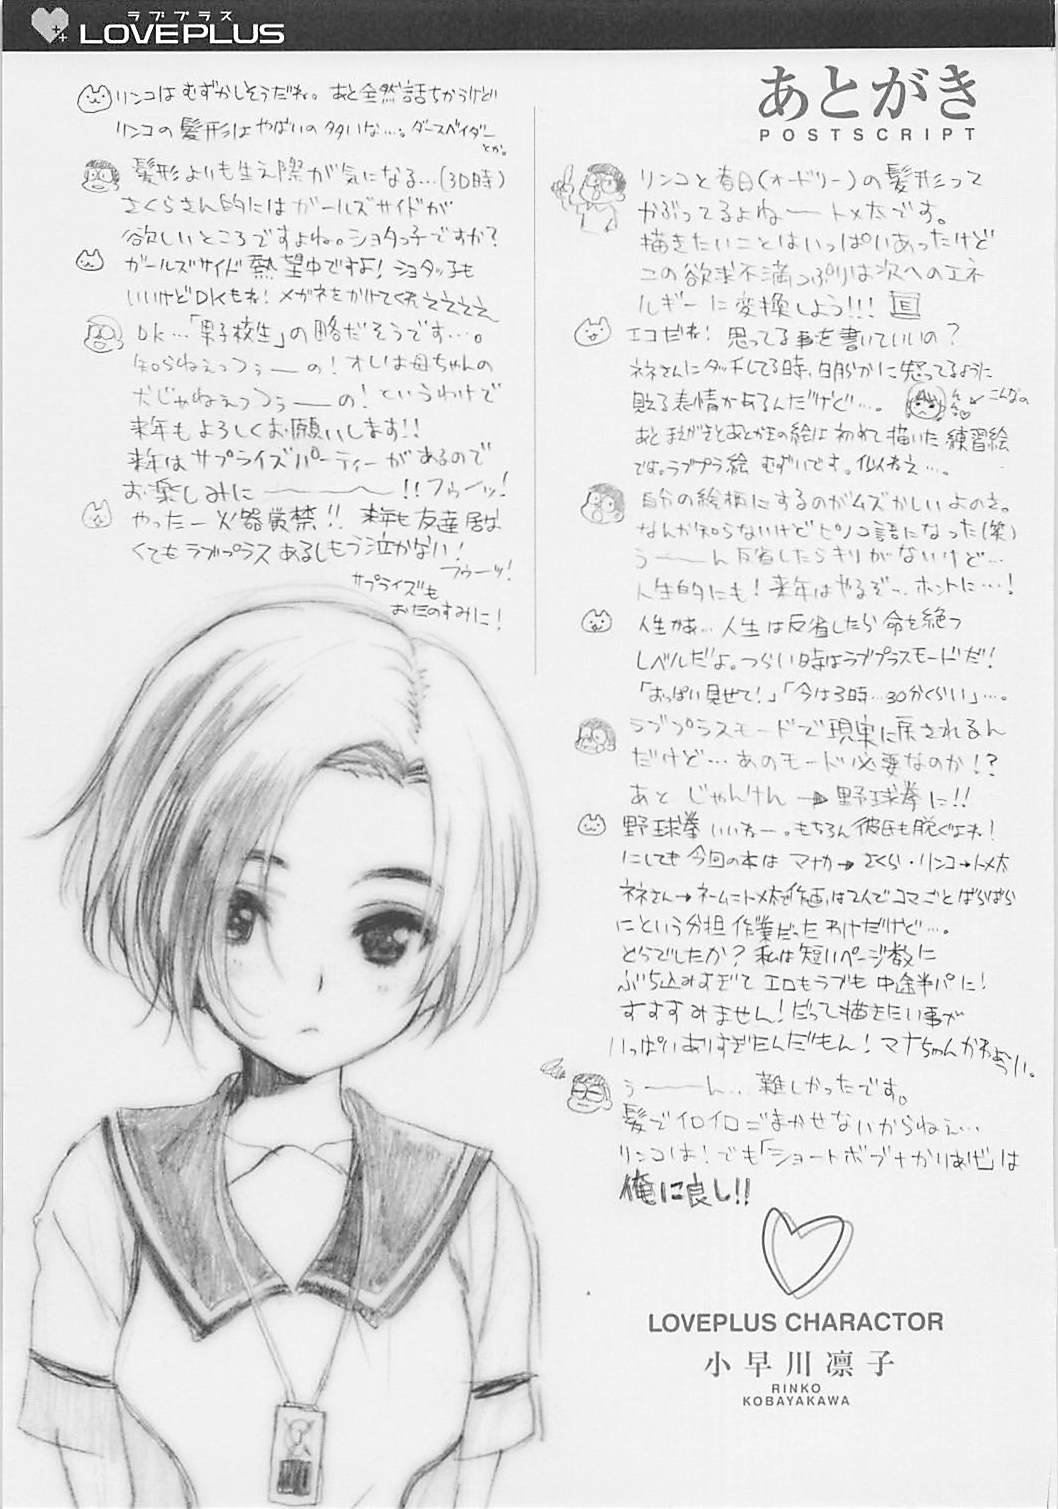 ラブプラス
LOVEPLUS
あとがき
POSTSCRIPT
リンコと春日(オードリー)の髪形って
かぶってるよねートメ太です。
描きたいことはいっぱいあったけど
この欲求不満っぷりは次へのエネ
ルギーに変換しよう!!!
エコだね!思ってる事を書いていいの?
ネネさんにタッチしてる時、明らかに怒ってるように
見える表情があるんだけど…。
こんなの
あとまえがきとあとがきの絵は初めて描いた練習絵
です。ラブプラ絵むずいです。似ねえ…。
自分の絵柄にするのがムズかしいよのさ。
なんか知らないけどピノコ語になった(笑)
うーーん反省したらキリがないけど…
人生的にも!来年はやるぞッ、ホントに…!
人生かぁ…人生は反省したら命を絶つ
レベルだよ。つらい時はラブプラスモードだ!
「おっぱい見せて!」「今は3時…30分くらい」…。
ラブプラスモードで現実に戻されるん
だけど…あのモード必要なのか!?
あと じゃんけん→野球拳に!!
野球拳いいねー。もちろん彼氏も脱ぐよね!
にしても今回の本は マナカ→さくら・リンコ→トメ太
ネネさん→ネームにトメ太で作画は2人でコマごとばらばら
にという分担作業だったわけだけど…。
どうでしたか?私は短いページ数に
ぶち込みすぎて エロもラブも中途半パに!
すすすみません!だって描きたい事が
いっぱいありすぎたんだもん!マナちゃんかわぁいい。
うーーん…難しかったです。
髪でイロイロごまかせないからねぇ…
リンコは!でも「ショートボブ+かりあげ」は
俺に良し!!
LOVEPLUS CHARACTOR
小早川凛子
RINKO
KOBAYAKAWA
リンコはむずかしそうだね。あと全然話ちがうけど
リンコの髪形はやばいの多いな…。ダースベイダー
とか。
髪形よりも生え際が気になる…(30時)
さくらさん的にはガールズサイドが
欲しいところですよね。ショタっ子ですか?
ガールズサイド熱望中ですよ!ショタッ子も
いいけどDKもね!メガネをかけてくれええええ
DK…「男子校生」の略だそうです…。
知らねえっつぅーの!オレは母ちゃんの
犬じゃねえっつぅーの!というわけで
来年もよろしくお願いします!!
来年はサプライズパーティーがあるので
お楽しみに〜〜〜!!フゥーッ!
やったー火器厳禁!!来年も友達居な
くてもラブプラスあるしもう泣かない!
フゥーッ!
サプライズも
おたのすみに!